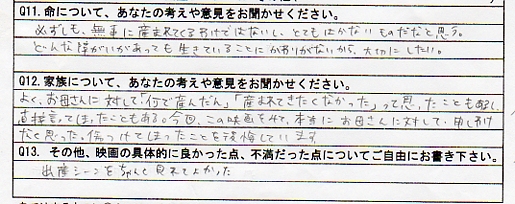 Q11. 命について、あなたの考えや意見をお聞かせください。
必ずしも、無事に産まれてくるわけではないし、とてもはかないものだなと思う。
どんな障がいがあっても生きていることにかわりがないから、大切にしたい。
Q12. 家族について、あなたの考えや意見をお聞かせください。
よく、お母さんに対して「何で産んだん」「産まれてきたくなかった」って思ったこともあるし、
直接言ってしまったこともある。今回、この映画をみて、本当にお母さんに対して申しわけ
なく思った。傷つけてしまったことを後悔しています
Q13. その他、映画の具体的に良かった点、不満だった点についてご自由にお書き下さい。
出産シーンをちゃんと見れてよかった